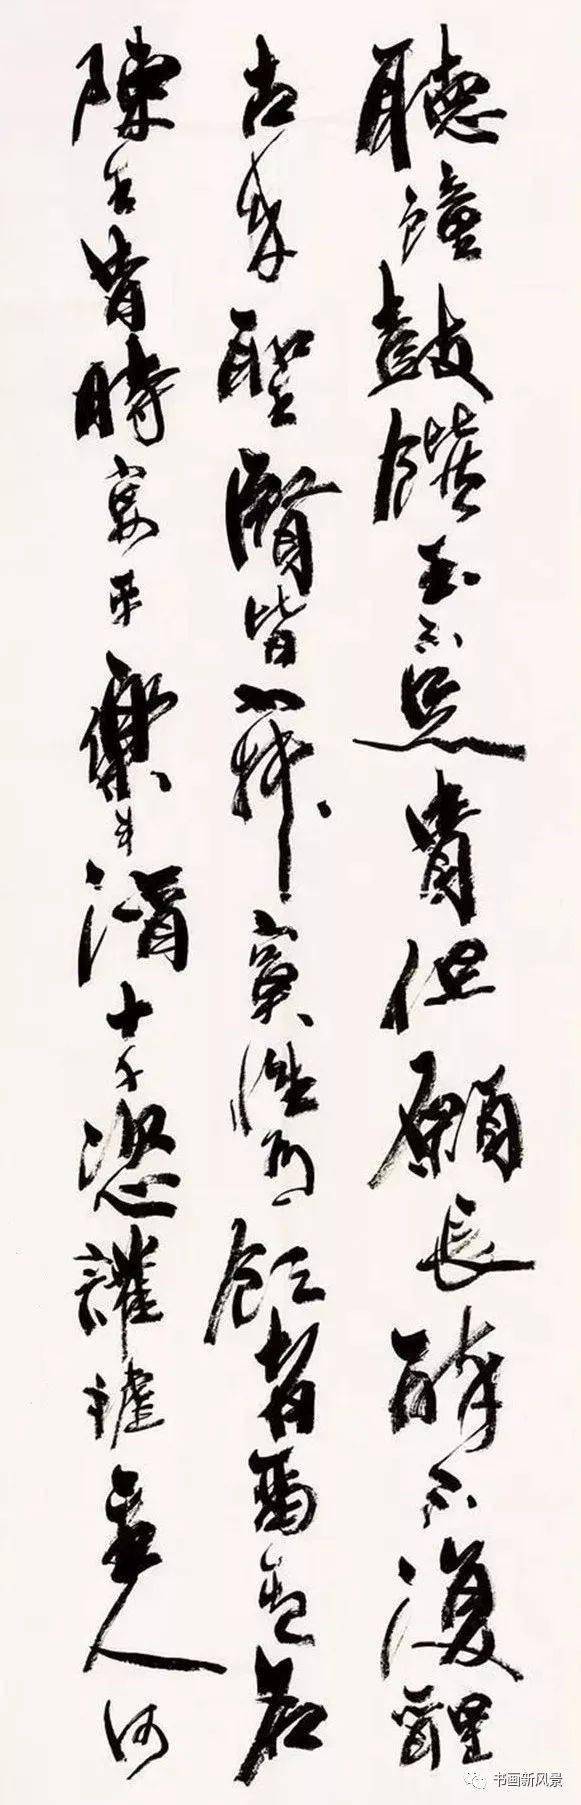 聽鐘鼓饌玉不足貴但願長醉不復醒
古來聖賢皆寂寞惟有飲者留其名
陳王昔時宴平樂斗酒十千恣讙謔主人何
书画新风景